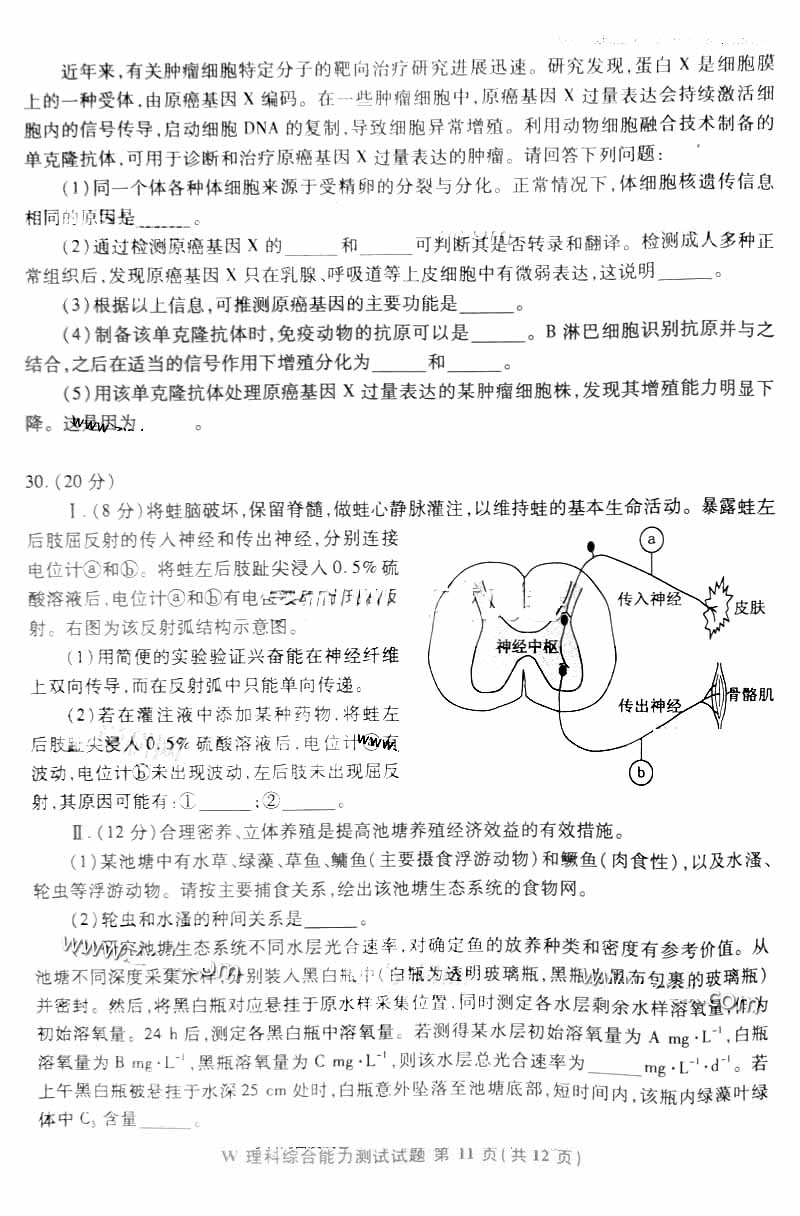 近年来,有关肿瘤细胞特定分子的靶向治疗研究进展迅速。研究发现,蛋白 X 是细胞膜
上的一种受体,由原癌基因 X 编码。在一些肿瘤细胞中,原癌基因 X 过量表达会持续激活细
胞内的信号传导,启动细胞 DNA 的复制,导致细胞异常增殖。利用动物细胞融合技术制备的
单克隆抗体,可用于诊断和治疗原癌基因 X 过量表达的肿瘤。请回答下列问题:
(1)同一个体各种体细胞来源于受精卵的分裂与分化。正常情况下,体细胞核遗传信息
相同的原因是______。
(2)通过检测原癌基因 X 的______和______可判断其是否转录和翻译。检测成人多种正
常组织后,发现原癌基因 X 只在乳腺、呼吸道等上皮细胞中有微弱表达,这说明______。
(3)根据以上信息,可推测原癌基因的主要功能是______。
(4)制备该单克隆抗体时,免疫动物的抗原可以是______。B 淋巴细胞识别抗原并与之
结合,之后在适当的信号作用下增殖分化为______和______。
(5)用该单克隆抗体处理原癌基因 X 过量表达的某肿瘤细胞株,发现其增殖能力明显下
降。这是因为 。
30.(20 分)
Ⅰ.(8 分)将蛙脑破坏,保留脊髓,做蛙心静脉灌注,以维持蛙的基本生命活动。暴露蛙左
后肢屈反射的传入神经和传出神经,分别连接
电位计ⓐ和ⓑ。将蛙左后肢趾尖浸入 0.5% 硫
酸溶液后,电位计ⓐ和ⓑ有电
射。右图为该反射弧结构示意图。
(1)用简便的实验验证兴奋能在神经纤维
上双向传导,而在反射弧中只能单向传递。
(2)若在灌注液中添加某种药物,将蛙左
后肢趾尖浸入 0.5% 硫酸溶液后,电位计 有
波动,电位计ⓑ未出现波动,左后肢未出现屈反
射,其原因可能有:①______;②______。
ⓐ
传入神经
皮肤
神经中枢
传出神经
骨骼肌
ⓑ
Ⅱ.(12 分)合理密养、立体养殖是提高池塘养殖经济效益的有效措施。
(1)某池塘中有水草、绿藻、草鱼、鳙鱼(主要摄食浮游动物)和鳜鱼(肉食性),以及水溞、
轮虫等浮游动物。请按主要捕食关系,绘出该池塘生态系统的食物网。
(2)轮虫和水溞的种间关系是______。
研究池塘生态系统不同水层光合速率,对确定鱼的放养种类和密度有参考价值。从
池塘不同深度采集水样,分别装入黑白瓶中(白瓶为透明玻璃瓶,黑瓶为黑布包裹的玻璃瓶)
并密封。然后,将黑白瓶对应悬挂于原水样采集位置,同时测定各水层剩余水样溶氧量,作为
初始溶氧量。24 h 后,测定各黑白瓶中溶氧量。若测得某水层初始溶氧量为 A mg·L⁻¹,白瓶
溶氧量为 B mg·L⁻¹,黑瓶溶氧量为 C mg·L⁻¹,则该水层总光合速率为______mg·L⁻¹·d⁻¹。若
上午黑白瓶被悬挂于水深 25 cm 处时,白瓶意外坠落至池塘底部,短时间内,该瓶内绿藻叶绿
体中 C₃ 含量______。
W 理科综合能力测试试题 第 11 页(共 12 页)